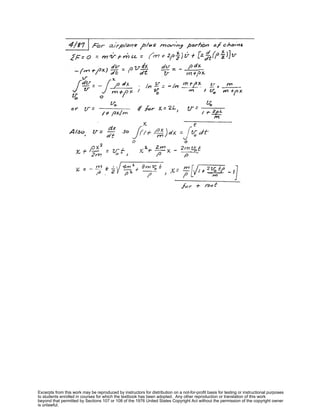 4/87 For airplane plus moving portion of chains
ΣF = 0 = m v̇ + ṁu = (m + 2ρ x/2) v̇ + [2 d/dt (ρ x/2)] v
-(m + ρx) dv/dt = ρ v dx/dt, dv/v = - ρ dx / (m + ρx)
∫_{v₀}^{v} dv/v = - ∫_0^x ρ dx / (m + ρx), ln v/v₀ = - ln (m + ρx)/m, v/v₀ = m / (m + ρx)
or v = v₀ / (1 + ρx/m) & for x = 2L, v = v₀ / (1 + 2ρL/m)
Also, v = dx/dt so ∫_0^x (1 + ρx/m) dx = ∫_0^t v₀ dt
x + ρx²/2m = v₀t, x² + 2m/ρ x - 2mv₀t/ρ
x = - m/ρ ± 1/2 √(4m²/ρ² + 8mv₀t/ρ), x = m/ρ [√(1 + 2v₀tρ/m) - 1]
for + root
Excerpts from this work may be reproduced by instructors for distribution on a not-for-profit basis for testing or instructional purposes
to students enrolled in courses for which the textbook has been adopted. Any other reproduction or translation of this work
beyond that permitted by Sections 107 or 108 of the 1976 United States Copyright Act without the permission of the copyright owner
is unlawful.